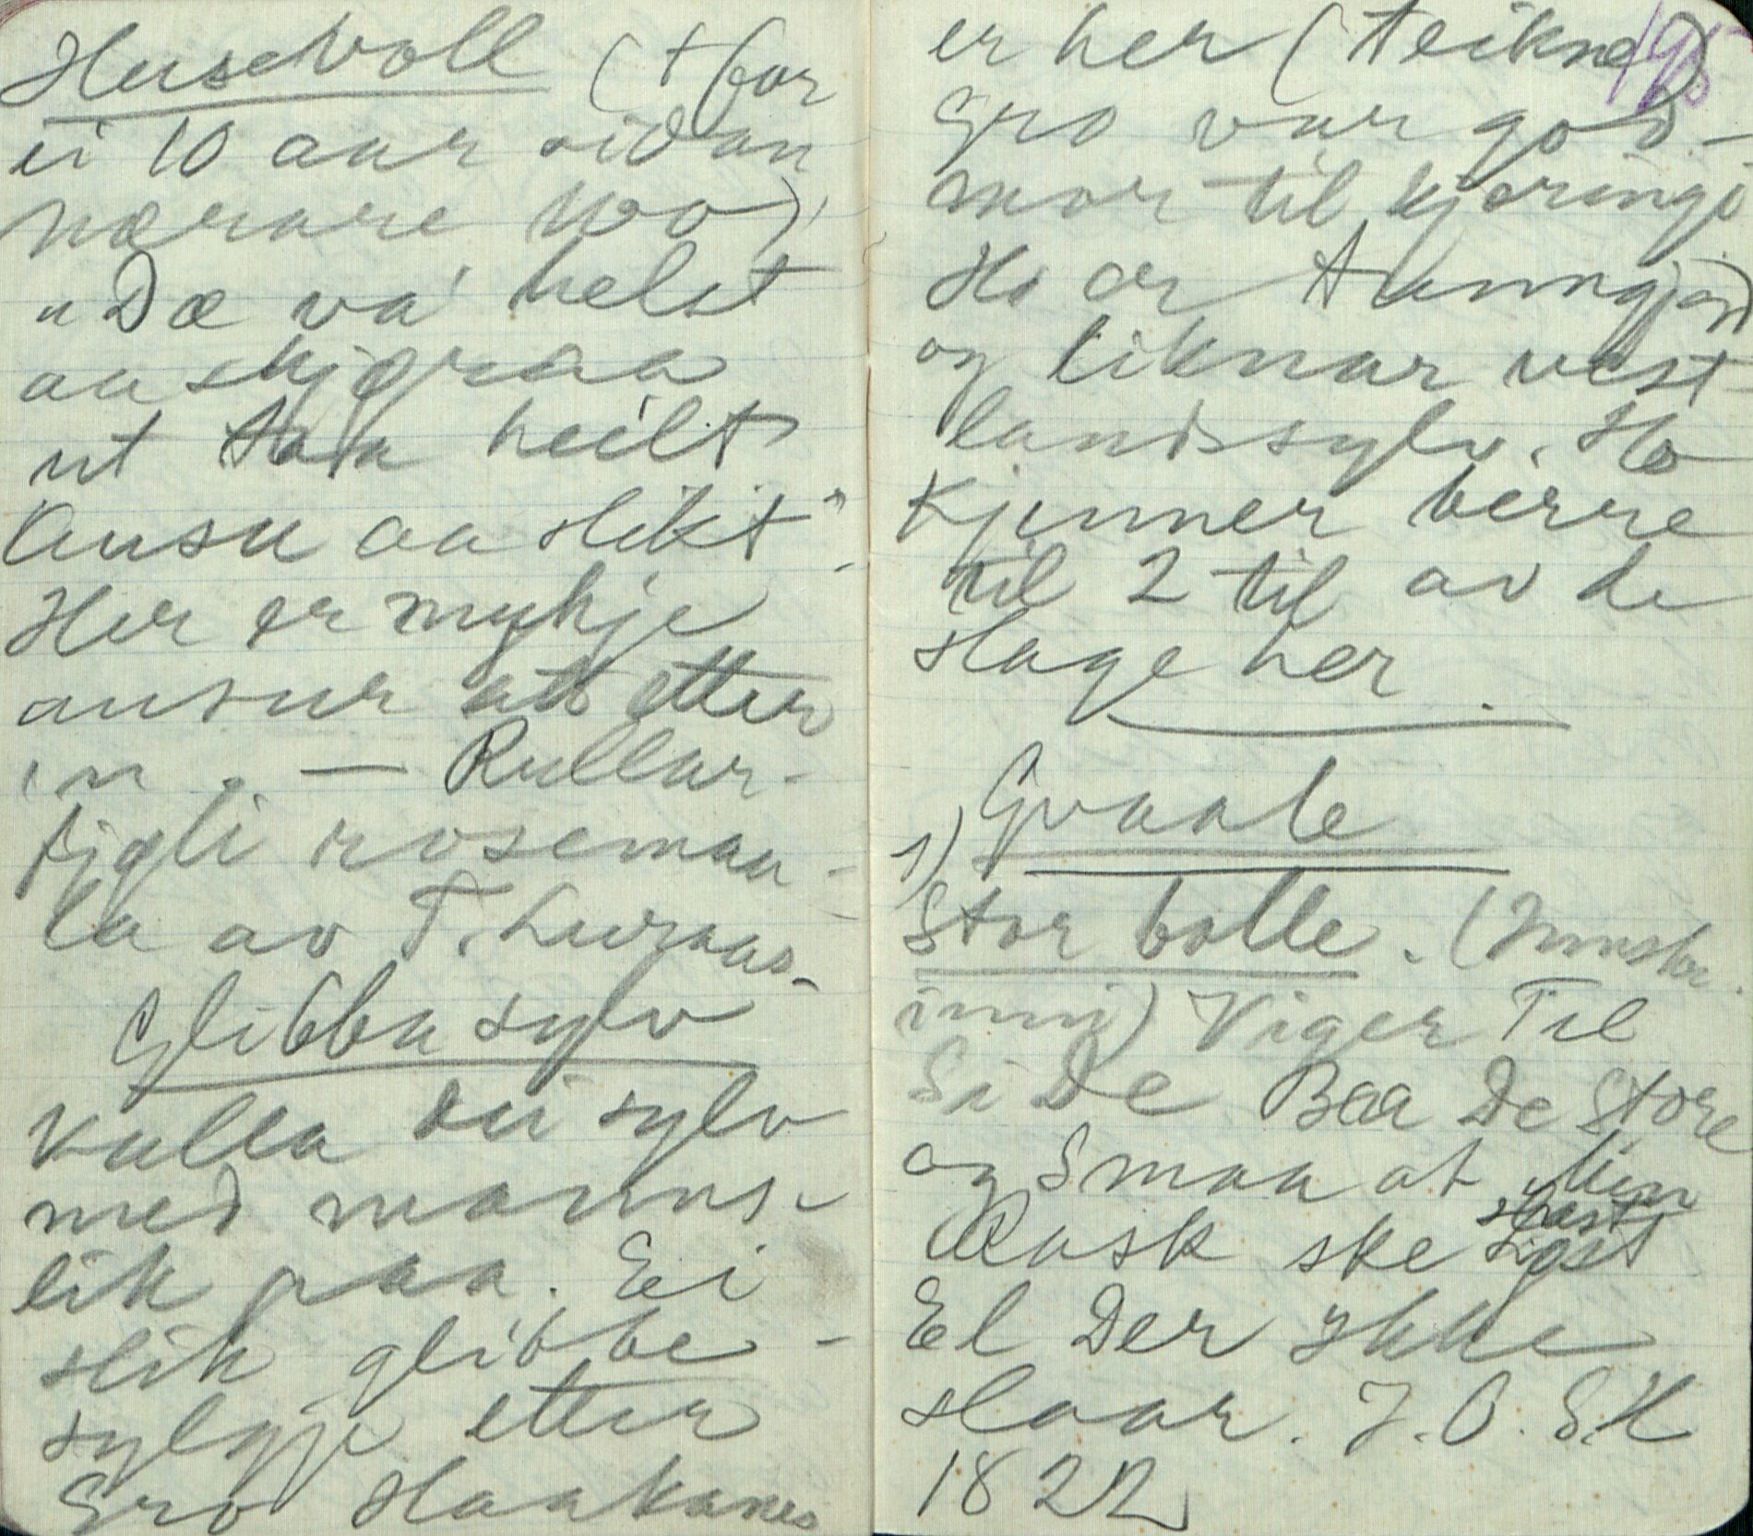 Husevoll († for
ei 10 aar sidan
nærare 100)
"Dæ va' helst
aa skjeraa
ut taa heilt
Ausu aa slikt".
Her er mykje
ausur att etter
'n. — Rullar-
fjøli rosemaa-
la av T. Luraas.
Glibbasylv
Kalla dei sylv
med manns-
lik paa. Ei
slik glibbe-
sylgje etter
Gro Haakanes
er her (teikne)
195
Gro var god-
mor til kjeringi
Ho er tunngjord
og liknar vest-
landssylv. Ho
Kjenner berre
til 2 til av de
slage her.
Gvaale
1)
Stor bolle. (Innskr.
inni) Viger Til
Side Baa De Store
og Smaa at Min
Rask ske
El Der Ikke
slaar. J. O. S. H
1822